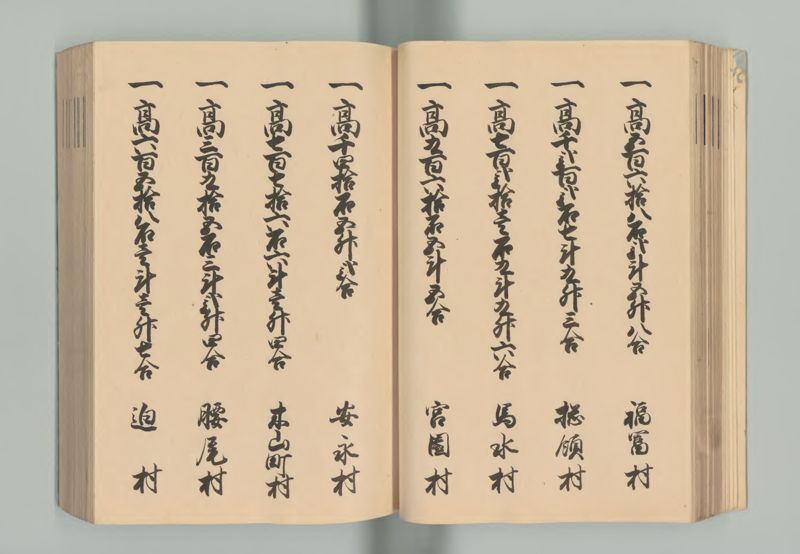 一高五百六拾八石弐斗五升八合 福富村
一高千弐百弐石七斗九升三合 惣領村
一高七百弐拾壱石九斗九升六合 馬水村
一高九百六拾石五斗五合 宮園村
一高千四拾石五升弐合 安永村
一高七百七拾六石六斗壱升四合 木山町村
一高三百九拾五石三斗弐升四合 腰尾村
一高六百五拾八石壱斗壱升七合 迫村